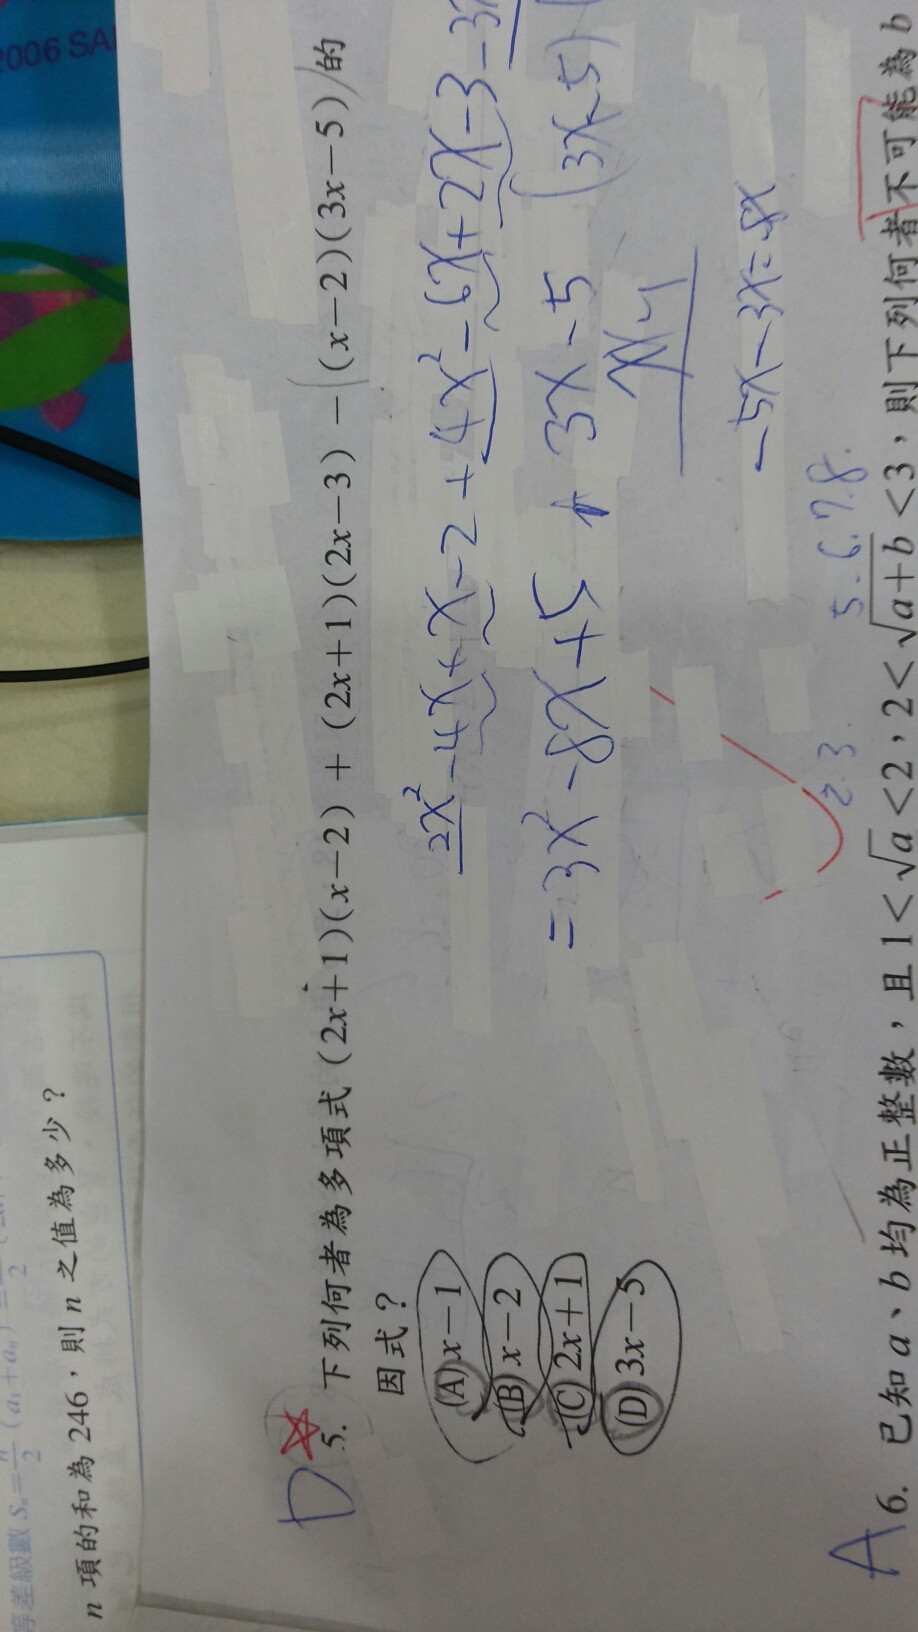 2006 SA
等差級數 Sn = n/2 (a₁+aₙ)
n 項的和為 246，則 n 之值為多少？
D
5. 下列何者為多項式 (2x+1)(x−2) + (2x+1)(2x−3) − (x−2)(3x−5) 的
因式？
2x² −4x+x−2 +4x²−6x+2x−3 −3x
(A) x−1
= 3x² −8x+5 + 3x−5 (3x-5)(
(B) x−2
(C) 2x+1
(D) 3x−5
−5x−3x=−8x
2.3 5.6.7.8.
A
6. 已知 a、b 均為正整數，且 1<√a<2，2<√a+b<3，則下列何者不可能為 b